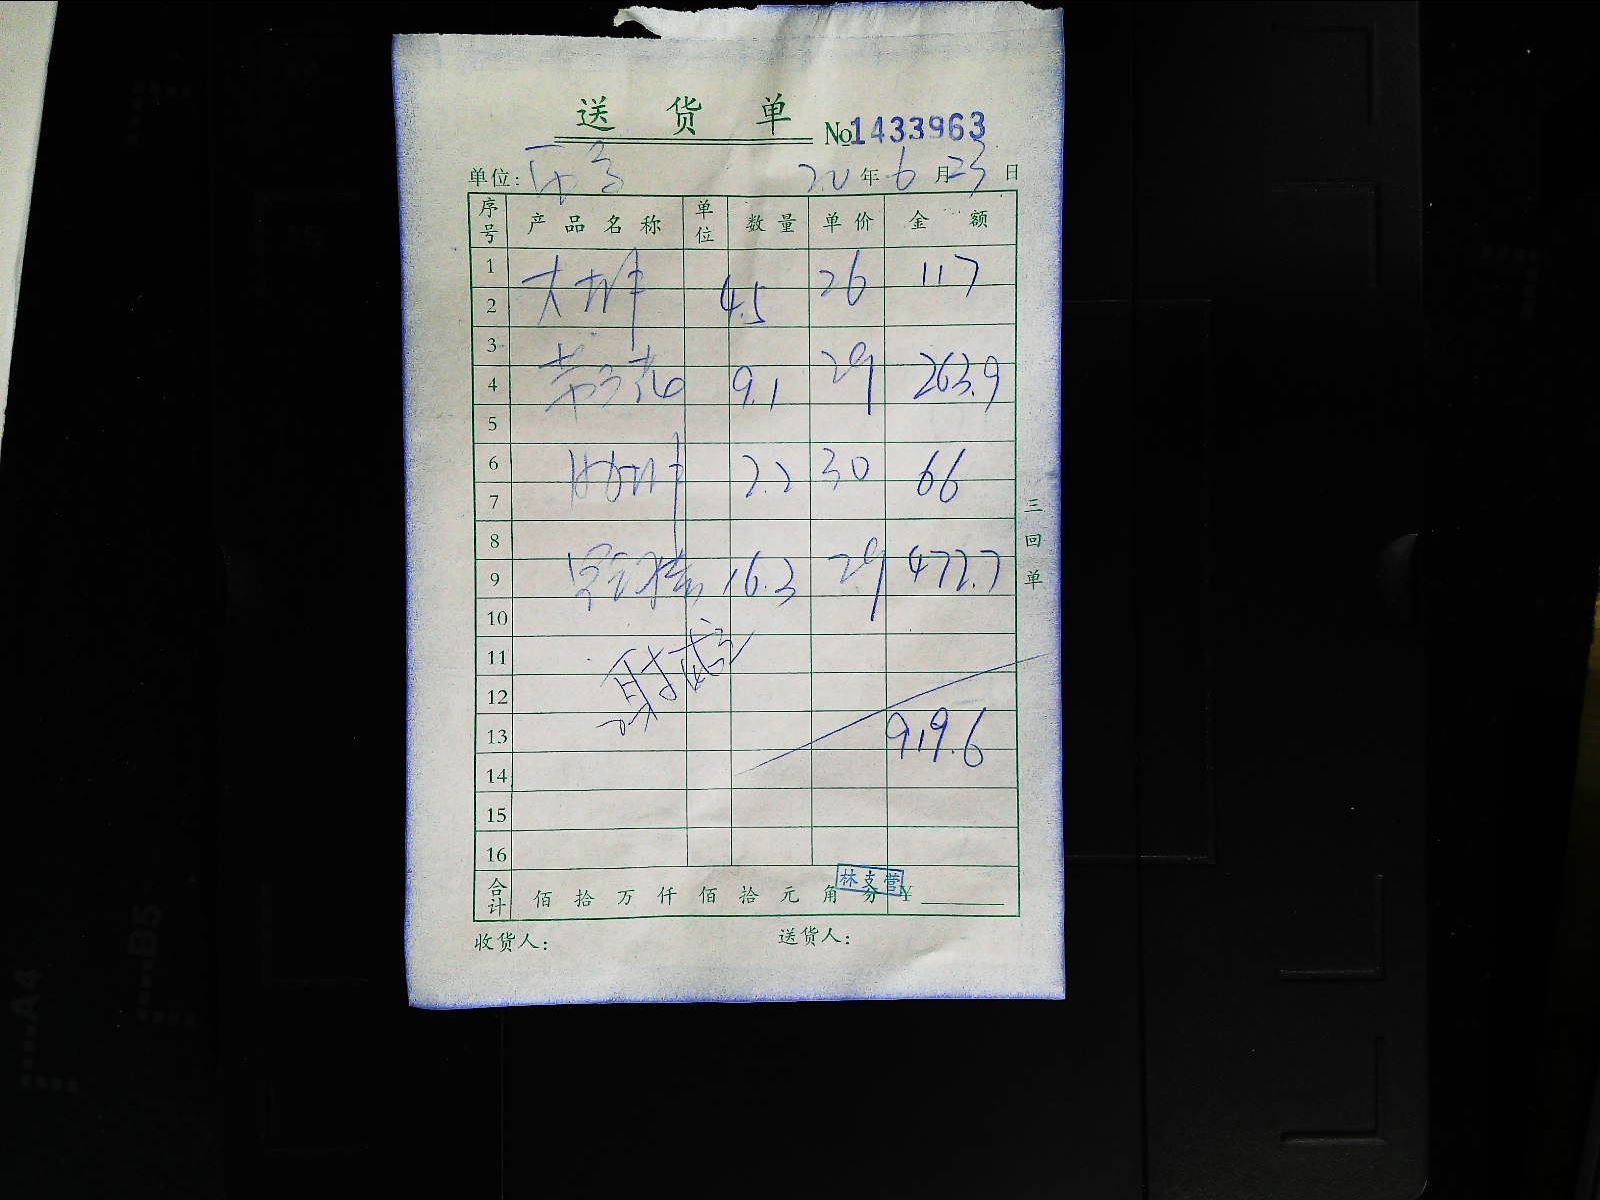 送货单 No1433963
单位: 20年6月23日
序号 产品名称 单位 数量 单价 金额
1 4.5 26 117
2
3
4 9.1 29 263.9
5
6 2.2 30 66
7
8
9 16.3 29 472.7
10
11
12
13 919.6
14
15
16
合计 佰拾万仟佰拾元角分 ¥
林支营
收货人: 送货人:
三回单